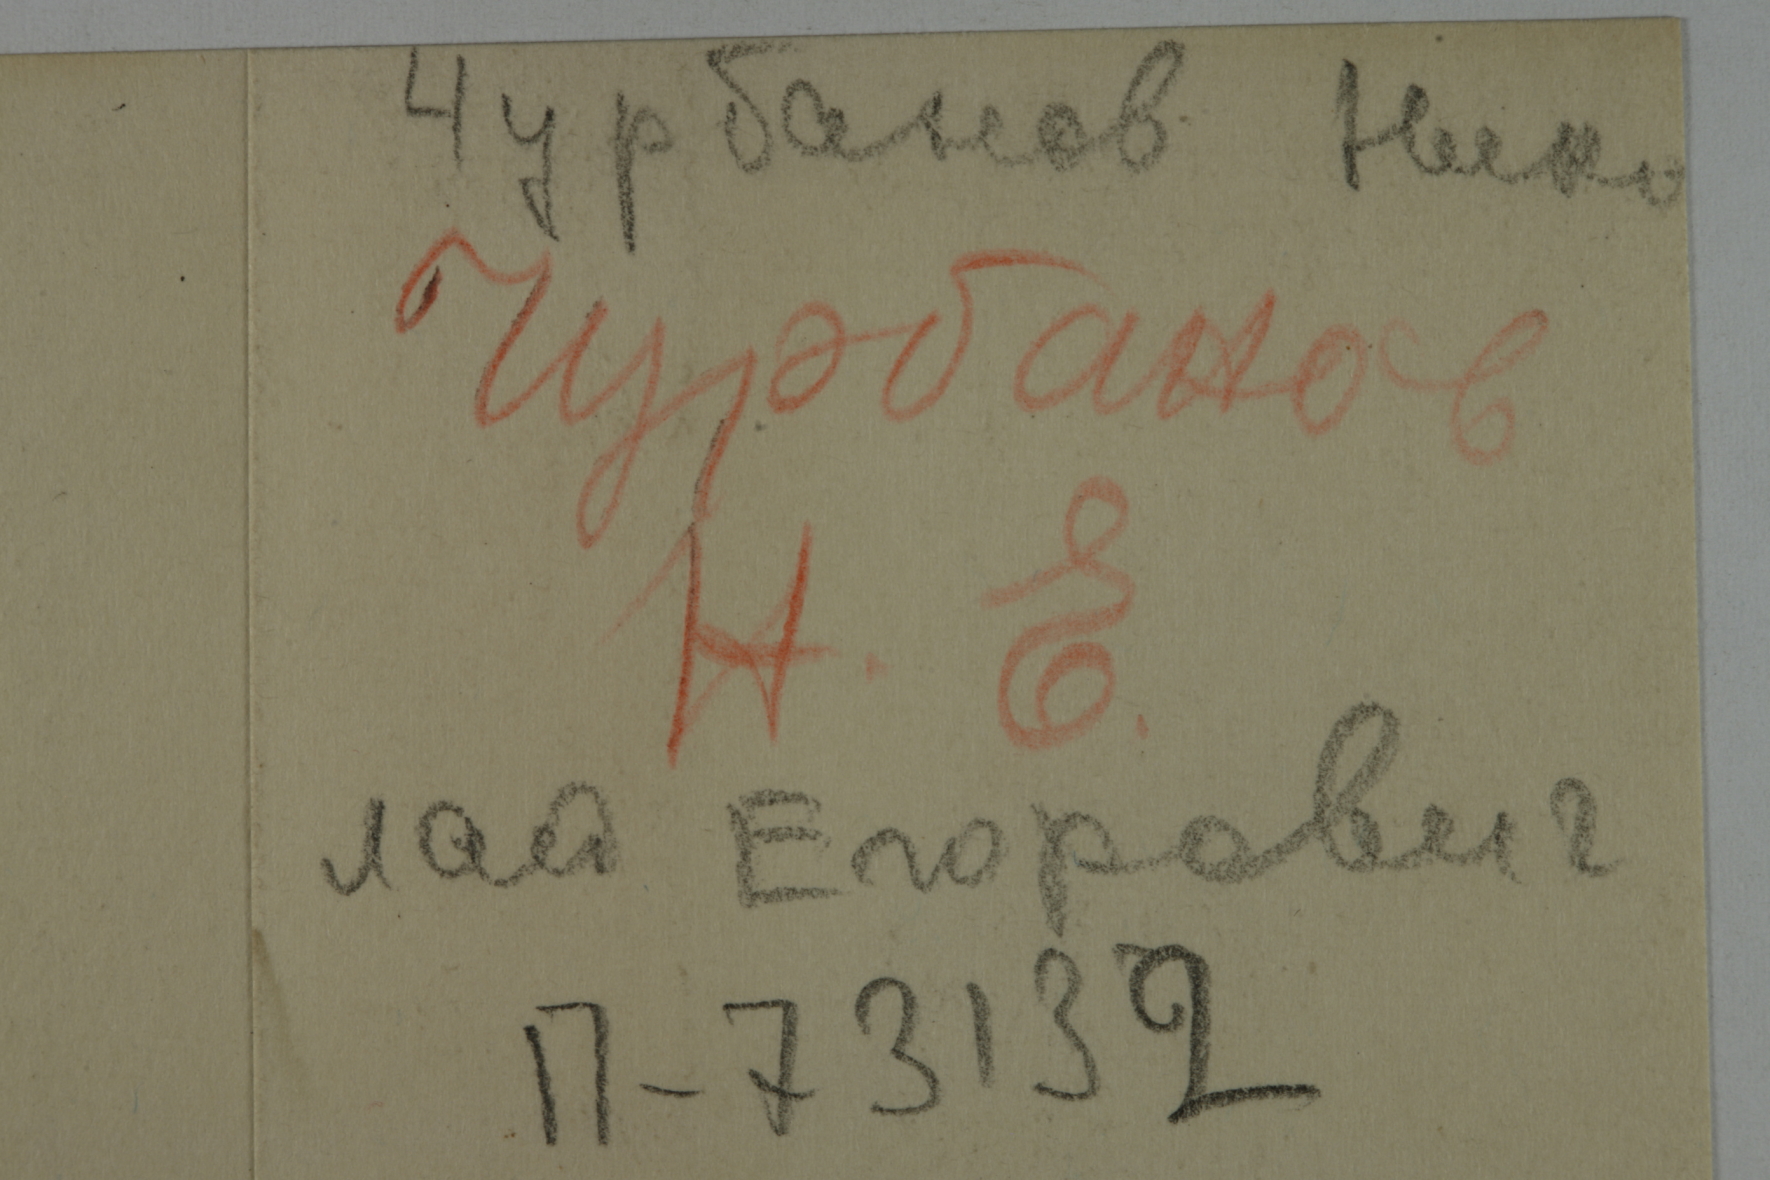 Чурбанов Нико
Чурбанов
Н. Е.
лай Егоравич
П-73132